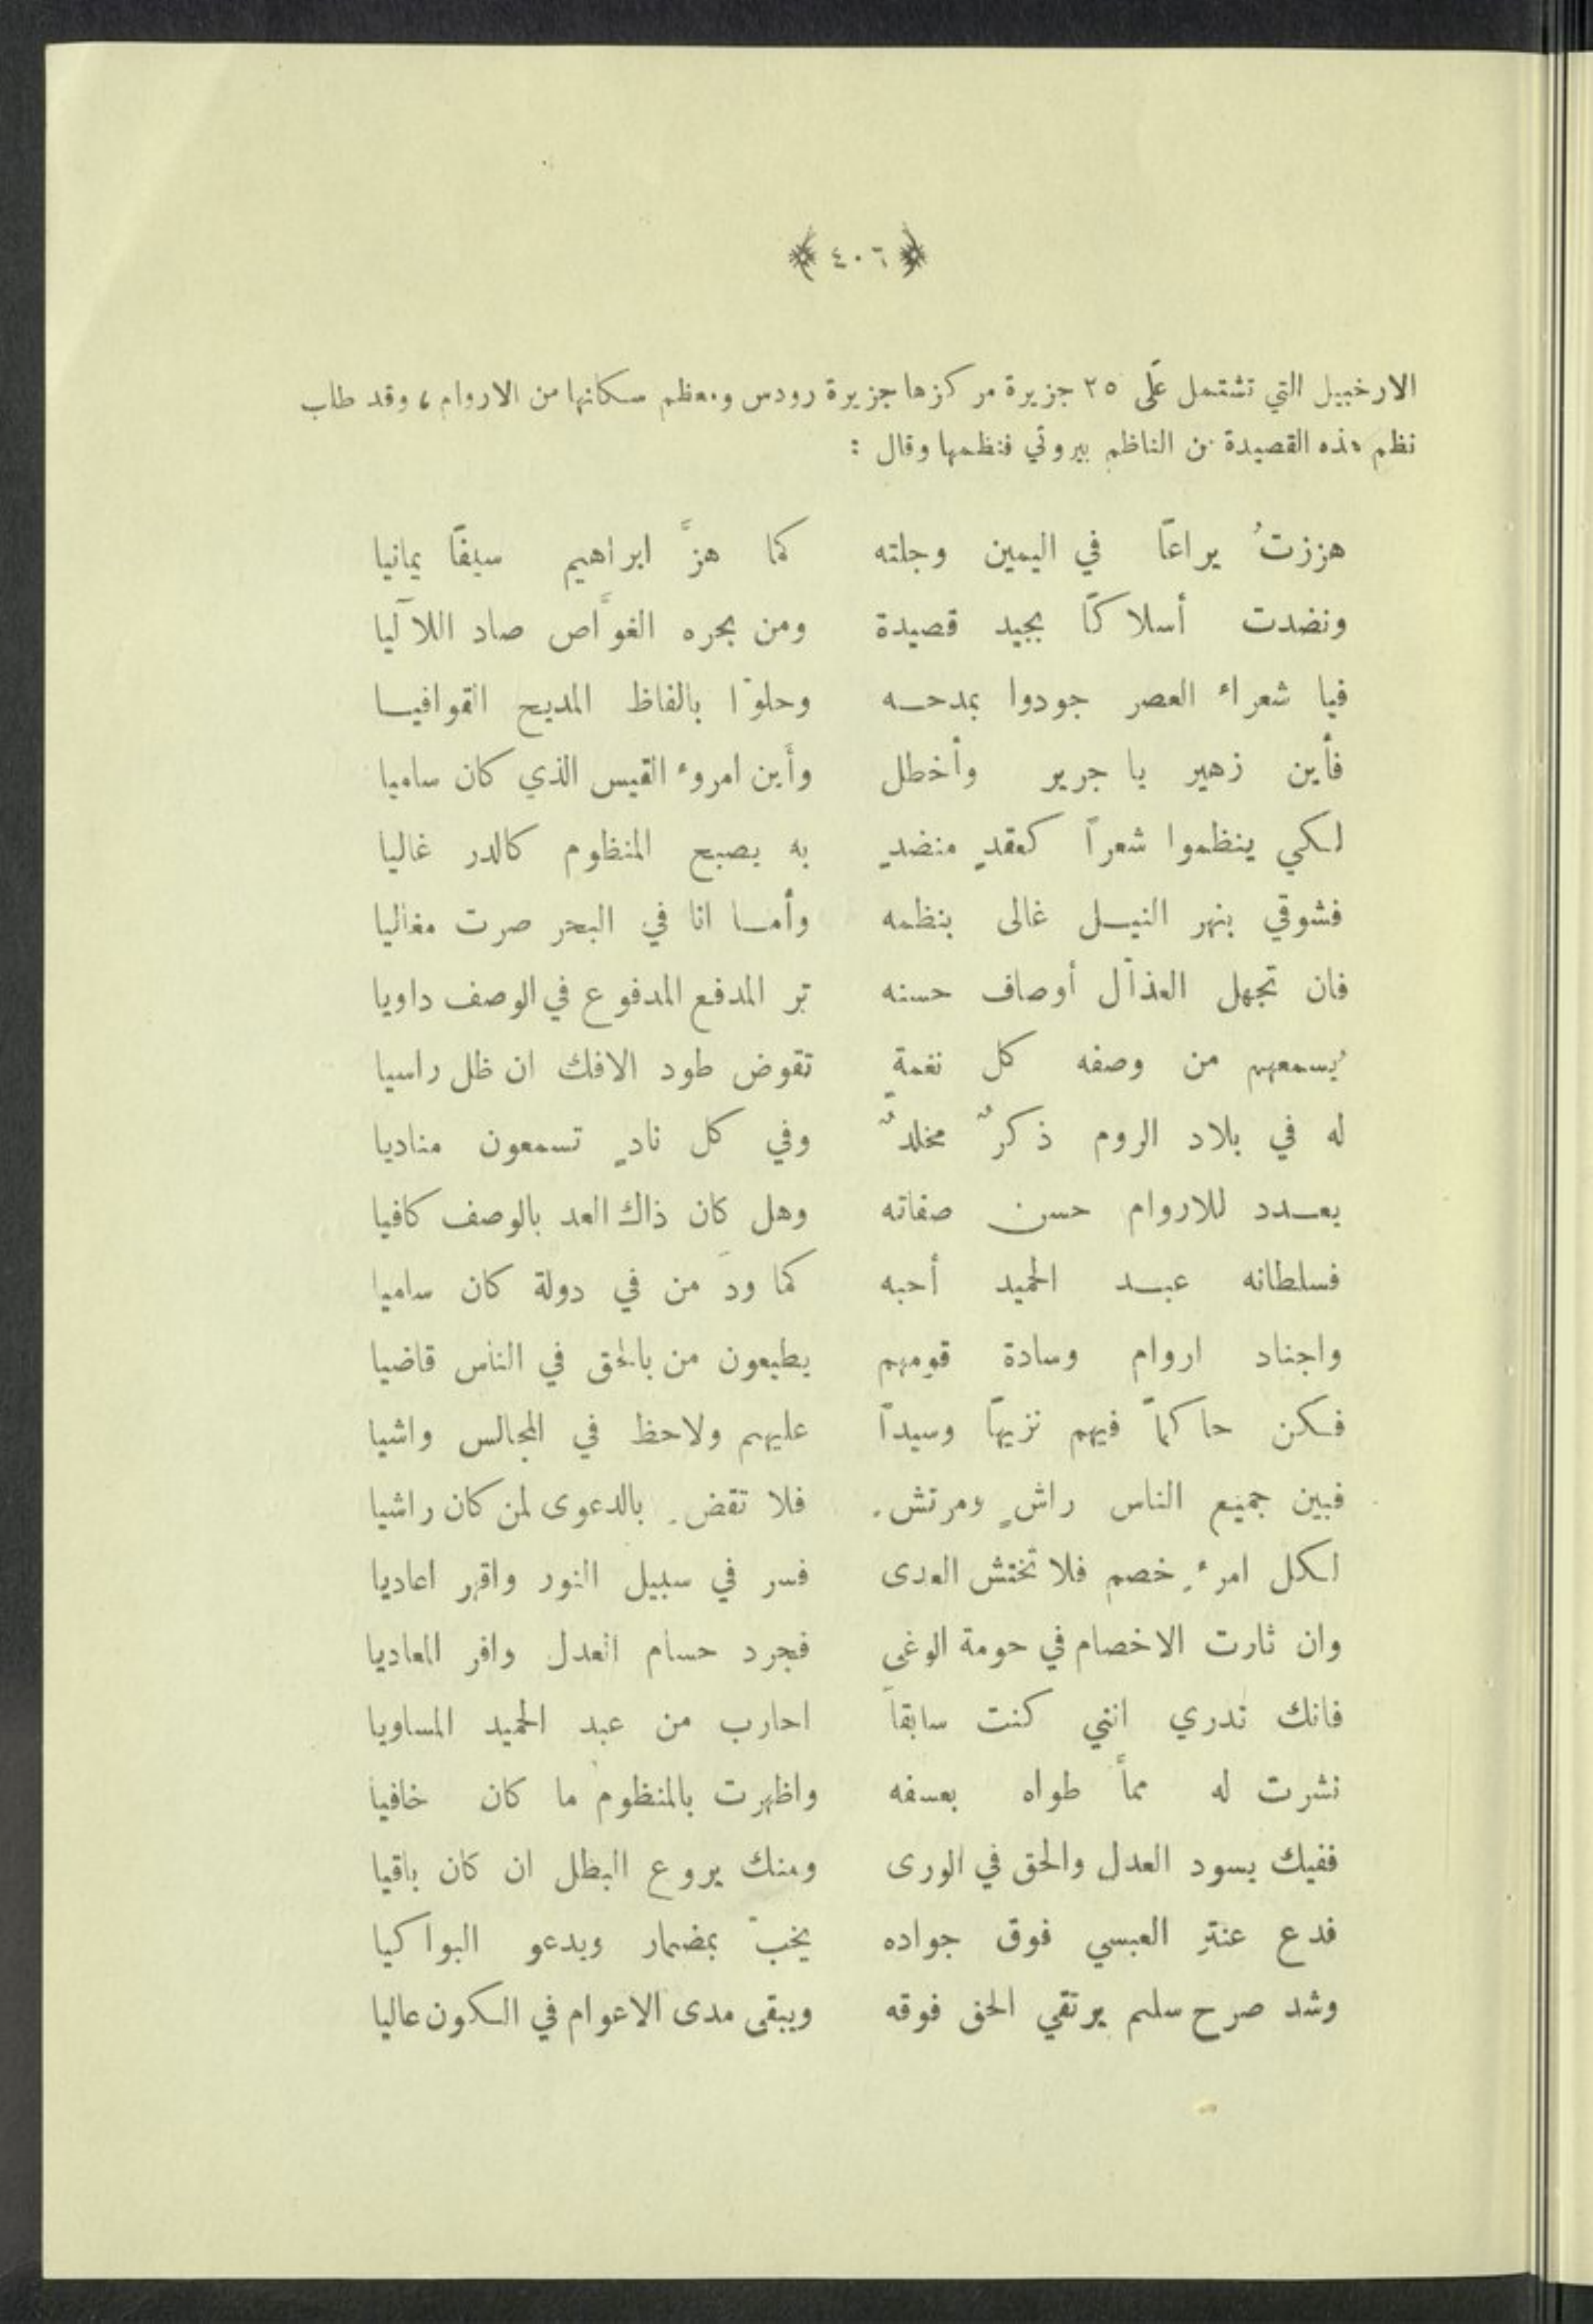 ﴿ ٤٠٦ ﴾
الارخبيل التي تشتمل على ٢٥ جزيرة مركزها جزيرة رودس ومعظم سكانها من الاروام ، وقد طلب
نظم هذه القصيدة من الناظم بيروتي فنظمها وقال :
هززتُ يراعاً في اليمين وجلته كما هزَّ ابراهيم سيفاً يمانيا
ونضدت أسلاكاً بجيد قصيدة ومن بحره الغوَّاص صاد اللآليا
فيا شعراء العصر جودوا بمدحه وحلوّا بالفاظ المديح القوافيا
فأين زهير يا جرير وأخطل وأَين امروء القيس الذي كان ساميا
لكي ينظموا شعراً كعقدٍ منضدٍ به يصبح المنظوم كالدر غاليا
فشوقي بنهر النيل غالى بنظمه وأما انا في البحر صرت مغاليا
فان تجهل العذال أوصاف حسنه تر المدفع المدفوع في الوصف داويا
يُسمعهم من وصفه كل نغمةٍ تقوض طود الافك ان ظل راسيا
له في بلاد الروم ذكرٌ مخلدٌ وفي كل نادٍ تسمعون مناديا
يعدد للاروام حسن صفاته وهل كان ذاك العد بالوصف كافيا
فسلطانه عبد الحميد أحبه كما ودَ من في دولة كان ساميا
واجناد اروام وسادة قومهم يطيعون من بالحق في الناس قاضيا
فكن حاكماً فيهم نزيهاً وسيداً عليهم ولاحظ في المجالس واشيا
فبين جميع الناس راشٍ ومرتشِ فلا تقضِ بالدعوى لمن كان راشيا
لكل امرءِ خصم فلا تختش العدى فسر في سبيل النور واقهر اعاديا
وان ثارت الاخصام في حومة الوغى فجرد حسام العدل وافر المعاديا
فانك تدري انني كنت سابقاً احارب من عبد الحميد المساويا
نشرت له مماً طواه بعسفه واظهرت بالمنظوم ما كان خافيا
ففيك يسود العدل والحق في الورى ومنك يروع البطل ان كان باقيا
فدع عنتر العبسي فوق جواده يخبّ بمضمار ويدعو البواكيا
وشد صرح سلم يرتقي الحق فوقه ويبقى مدى الاعوام في الكون عاليا